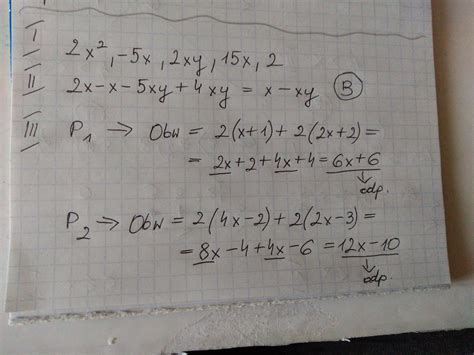 I
2x², -5x, 2xy, 15x, 2
II
2x-x-5xy+4xy = x-xy (B)
III
P₁ → Obw = 2(x+1)+2(2x+2)=
= 2x+2+4x+4=6x+6
odp.
P₂ → Obw = 2(4x-2)+2(2x-3)=
= 8x-4+4x-6=12x-10
odp.